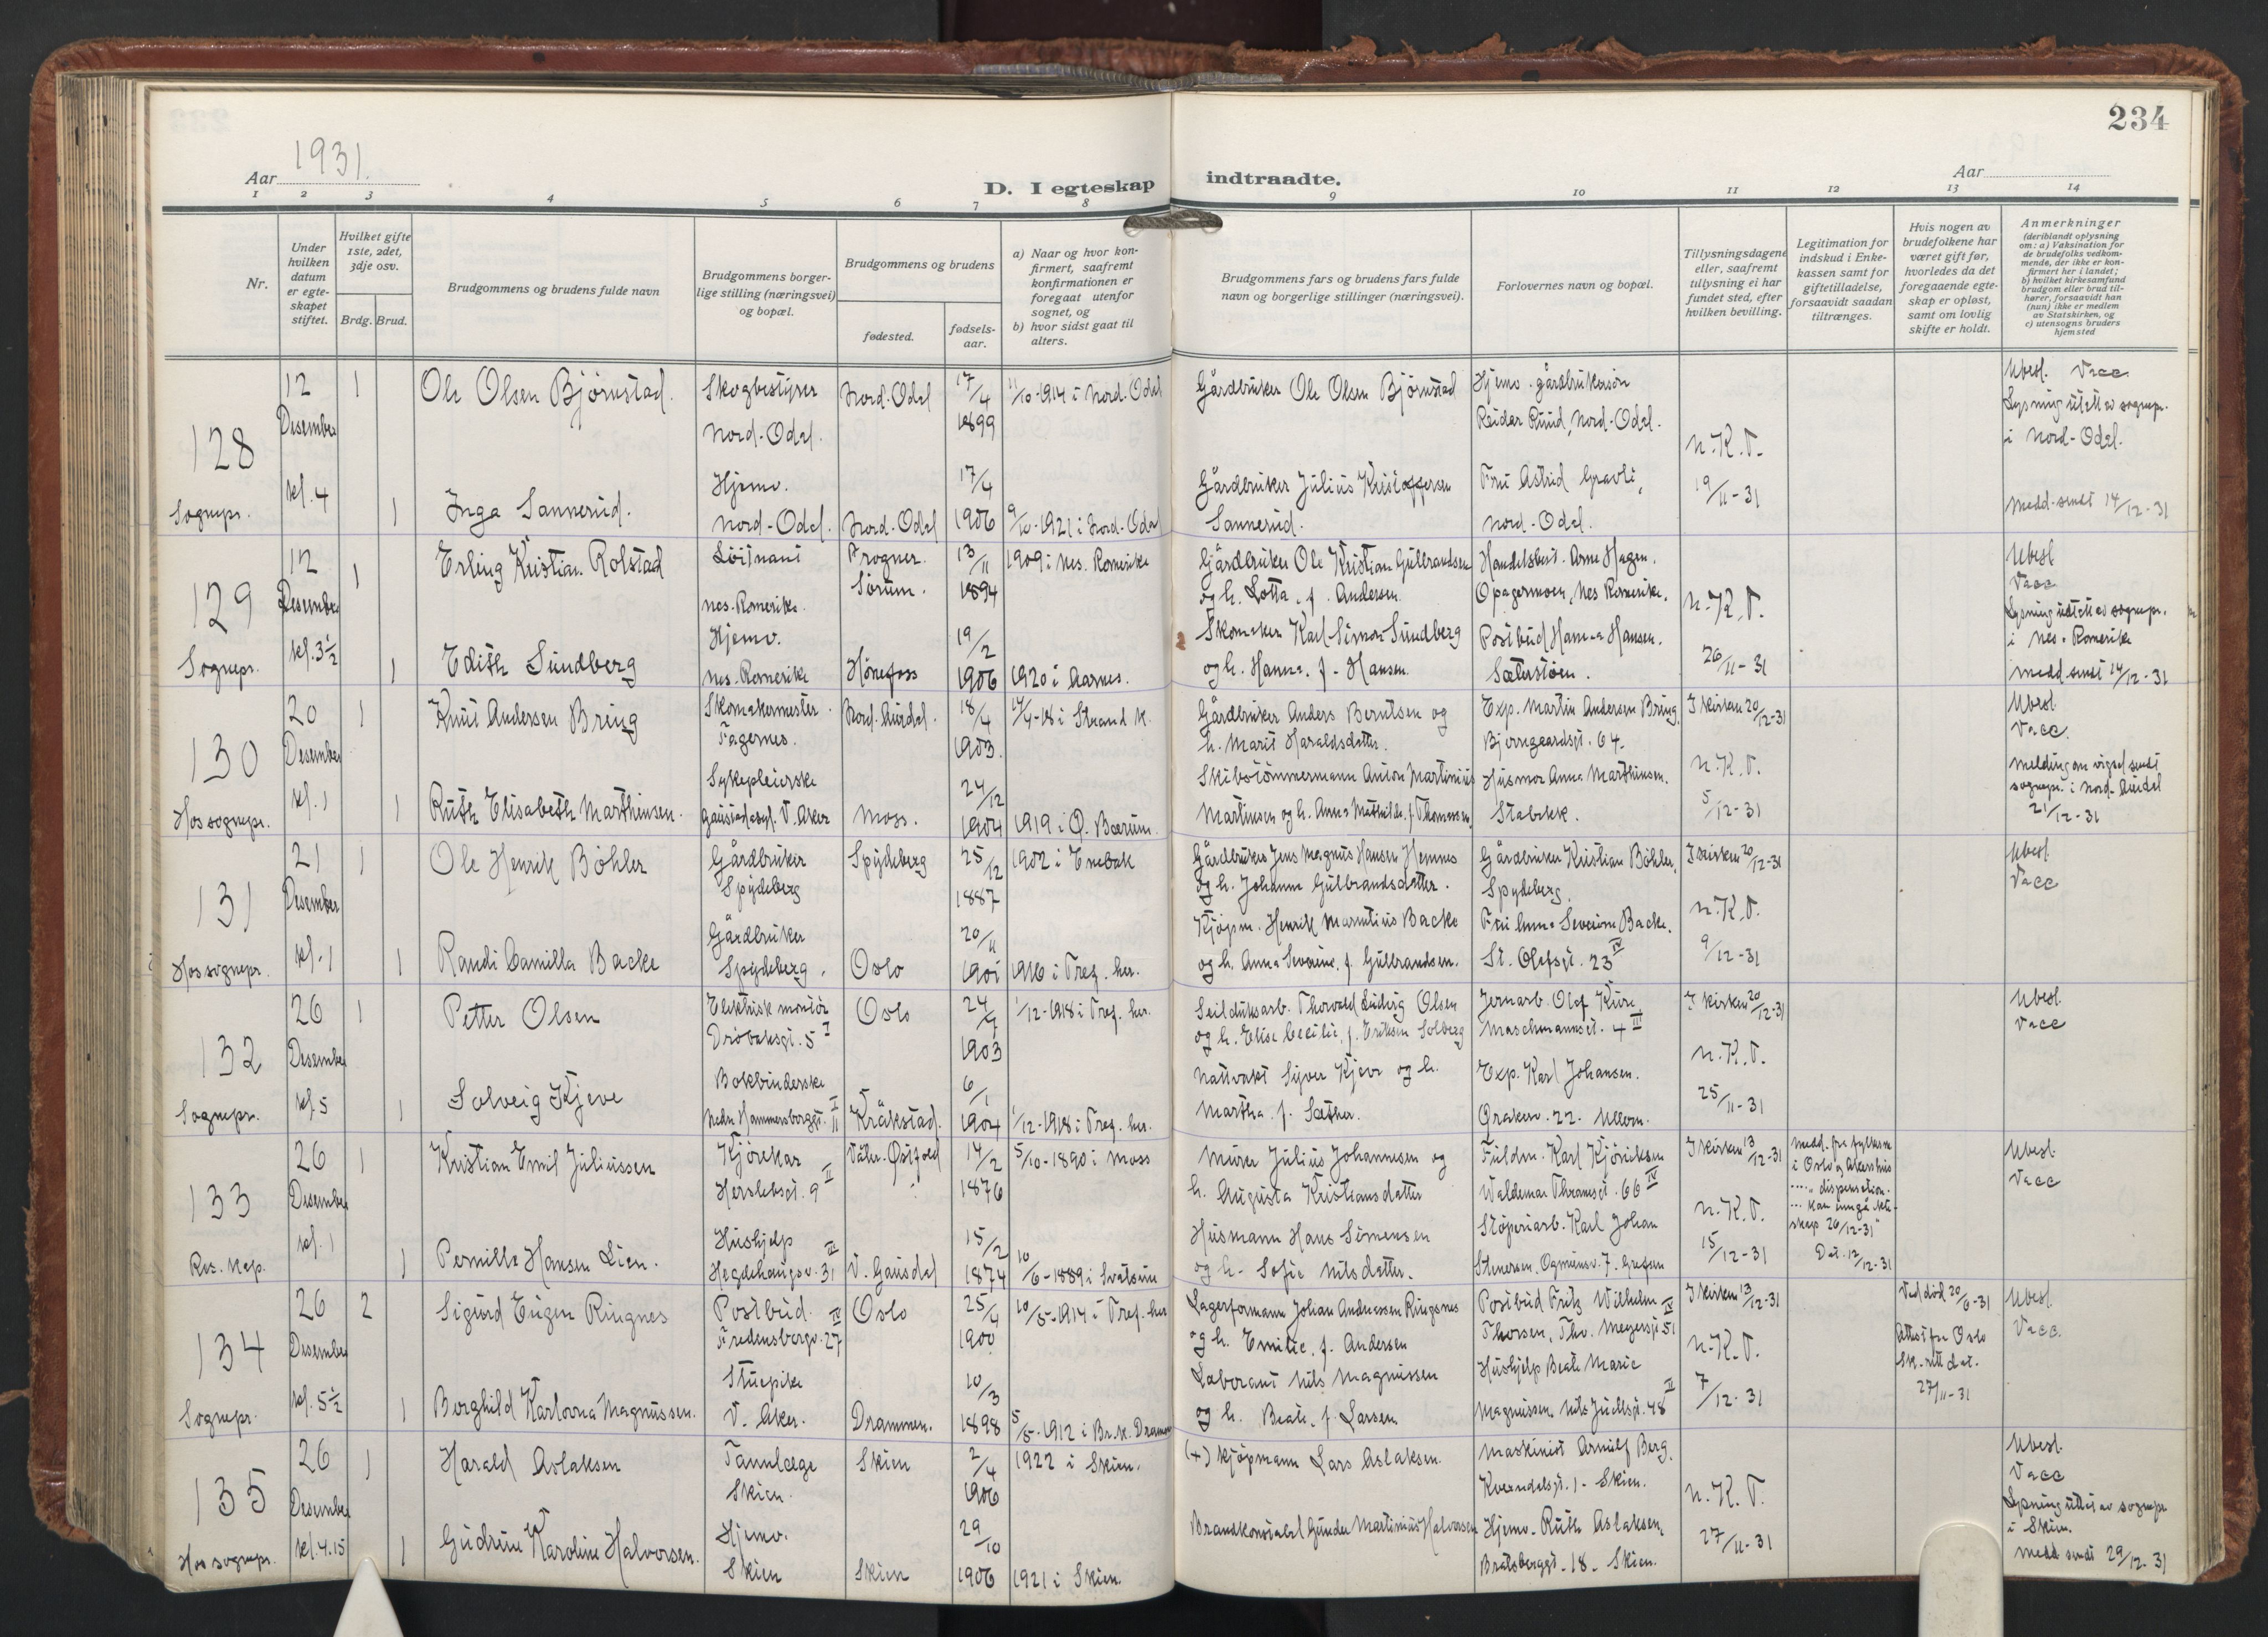 234
Aar 1931.
D. I egteskap indtraadte.
Aar
1 2 3 4 5 6 7 8 9 10 11 12 13 14
Nr.
Under hvilken datum er egteskapet stiftet.
Hvilket gifte 1ste, 2det, 3dje osv.
Brdg. Brud.
Brudgommens og brudens fulde navn
Brudgommens borgerlige stilling (næringsvei) og bopæl.
Brudgommens og brudens
fødested.
fødselsaar.
a) Naar og hvor konfirmert, saafremt konfirmationen er foregaat utenfor sognet, og
b) hvor sidst gaat til alters.
Brudgommens fars og brudens fars fulde navn og borgerlige stillinger (næringsvei).
Forlovernes navn og bopæl.
Tillysningsdagene eller, saafremt tillysning ei har fundet sted, efter hvilken bevilling.
Legitimation for indskud i Enkekassen samt for giftetilladelse, forsaavidt saadan tiltrænges.
Hvis nogen av brudefolkene har været gift før, hvorledes da det foregaaende egteskap er opløst, samt om lovlig skifte er holdt.
Anmerkninger
(deriblandt oplysning om: a) Vaksination for de brudefolks vedkommende, der ikke er konfirmert her i landet;
b) hvilket kirkesamfund brudgom eller brud tilhører, forsaavidt han (hun) ikke er medlem av Statskirken, og
c) utensogns bruders hjemsted
128
Sognepr.
12 Desember kl. 4
1 Ole Olsen Bjørnstad.
Skogbestyrer Nord-Odal.
Nord-Odal
17/4 1899
11/10-1914 i Nord-Odal
Gårdbruker Ole Olsen Bjørnstad
Hjemv. gårdbrukersøn
Reidar Ruud, Nord-Odal.
N.K.T.
19/11-31
Ubesl. Vacc.
Lysning utett av sognepr.
i Nord-Odal.
Medd. sendt 14/12-31
1 Inga Sannerud.
Hjemv. Nord-Odal.
Nord-Odal
17/4 1906
9/10-1921 i Nord-Odal
Gårdbruker Julius Kristoffersen
Sannerud.
Fru Astrid Gravli,
Nord-Odal.
129
Sognepr.
12 Desember kl. 3½
1 Erling Kristian Rolstad
Løitnant
Nes-Romerike.
Frogner. Sørum.
13/11 1894
1909 i Nes. Romerike
Gårdbruker Ole Kristian Gulbrandsen
og h. Lotta. f. Andersen.
Handelsbest. Arne Hagen.
Opagermoen, Nes Romerike.
N.K.T.
26/11-31
Ubesl
Vacc
Lysning utett av sognepr.
i Nes-Romerike
Medd sendt 14/12-31
1 Edith Sundberg
Hjemv.
Nes-Romerike
Hønefoss
19/2 1906
1920 i Aarnes.
Skomaker Karl Simon Sundberg
og h. Hanna. f. Hansen.
Postbud Hanna Hansen.
Sæterstøen.
130
Hos sognepr.
20 Desember kl. 1
1 Knut Andersen Bring
Skomakermester.
Fagernes.
Nord-Aurdal.
18/4 1903.
14/4-18 i Strand K.
Gårdbruker Anders Berntsen og
h. Marit Haraldsdatter.
Exp. Martin Andersen Bring.
Bjerregaardsgt. 64.
I kirken 20/12-31
N.K.T.
5/12-31
Ubesl.
Vacc.
Melding om vigsel sendt
sognepr. i Nord-Aurdal
21/12-31
1 Ruth Elisabeth Marthinsen.
Sykepleierske
Gaustad asyl. V. Aker
Moss.
24/12 1904
1919 i Ø. Bærum.
Skibstømmermann Anton Martinius
Martinsen og h. Anna Mathilde f. Thomassen.
Husmor Anna Marthinsen.
Stabekk.
131
Hos sognepr.
21 Desember kl. 1
1 Ole Henrik Bøhler
Gårdbruker
Spydeberg
Spydeberg
25/12 1887
1902 i Enebak
Gårdbruker Jens Magnus Hansen Hemnes
og h. Johanne Gulbrandsdatter.
Gårdbruker Kristian Bøhler,
Spydeberg.
I kirken 20/12-31
N.K.T.
9/12-31
Ubesl.
Vacc
1 Randi Camilla Backe
Gårdbruker
Spydeberg.
Oslo
20/11 1901
1916 i Tref. her.
Kjøpm. Henrik Mauritius Backe
og h. Anna Severine, f. Gulbrandsen.
Fru Anna Severine Backe.
St. Olafsgt. 23 IV
132
Sognepr.
26 Desember kl. 5
1 Petter Olsen
Elektrisk montør
Drøbaksgt. 5 I
Oslo
24/7 1903
1/12-1918 i Tref. her.
Seilduksarb. Thorvald Ludvig Olsen
og h. Elise Cecilie, f. Eriksen Solberg
Jernarb. Olaf Kure
Maschmannsgt. 4 III
I kirken 20/12-31
N.K.T.
25/11-31
Ubesl.
Vacc
1 Solveig Kjeve
Bokbinderske
Nedre Hammersborggt. II
Kråkstad.
6/1 1904
1/12-1918 i Tref. her.
Nattvakt Syver Kjeve og h.
Martha. f. Sæther.
Exp. Karl Johansen.
Øraker v. 22. Ullern.
133
Res. kap.
26 Desember kl. 1
1 Kristian Emil Juliussen
Kjørekar
Herslebsgt. 9 II
Våler. Østfold
14/2 1876
5/10-1890 i Moss
Murer Julius Johannesen og
h. Augusta Kristiansdatter
Fuldm. Karl Kjøniksen
Waldemar Thranesgt. 66 IV
I kirken 13/12-31
N.K.T.
15/12-31
Medd. fra fylkesm.
i Oslo og Akershus
.... dispensation.
... kan inngå ekteskap 26/12-31"
Dat. 12/12-31
Ubesl.
Vacc
1 Pernille Hansen Lien.
Hushjelp
Hegdehaugsv. 31 III
V. Gausdal
15/2 1874
10/6-1889 i Svatsum
Husmann Hans Simensen
og h. Sofie Nilsdatter.
Støperiarb. Karl Johan
Stenersen. Ogmunsv. 7. Grefsen
134
Sognepr.
26 Desember kl. 5½
2 Sigurd Eugen Ringnes
Postbud.
Fredensborgv. 27 IV
Oslo
25/4 1900
10/5-1914 i Tref. her
Lagerformann Johan Andreassen Ringsnes
og h. Emilie, f. Andersen
Postbud Fritz Wilhelm
Thorsen, Thv. Meyersgt. 51 IV
I kirken 13/12-31
N.K.T.
7/12-31
Ved død 20/6-31
Attest fra Oslo
Sk.rett dat.
27/11-31
Ubesl.
Vacc.
1 Borghild Karlovna Magnussen.
Stuepike
V. Aker.
Drammen.
10/3 1898
5/5-1912 i Br.k. Drammen
Laborant Nils Magnussen
og h. Beate, f. Larsen
Hushjelp Beate Marie
Magnussen Nils Juelsgt. 48 II
135
Hos sognepr.
26 Desember kl. 4.15
1 Harald Aslaksen
Tannlæge
Skien.
Skien
2/4 1906
1922 i Skien.
(+) Kjøpmann Lars Aslaksen.
Maskinist Arnulf Berg.
Kverndalsgt. 1 - Skien.
N.K.T.
27/11-31
Ubesl.
Vacc
Lysning utett av sognepr
i Skien.
Medd sendt 29/12-31
1 Gudrun Karoline Halvorsen.
Hjemv.
Skien
Skien
29/10 1906
1921 i Skien.
Brandkonstabel Gunder Martinius Halvorsen
Hjemv. Ruth Aslaksen,
Bratsberggt. 18. Skien.